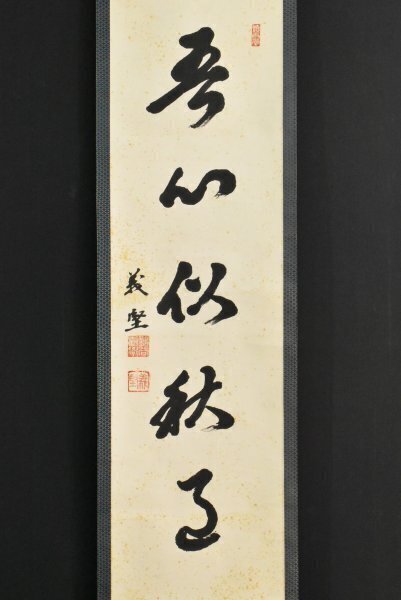 吾心似秋月
義堅